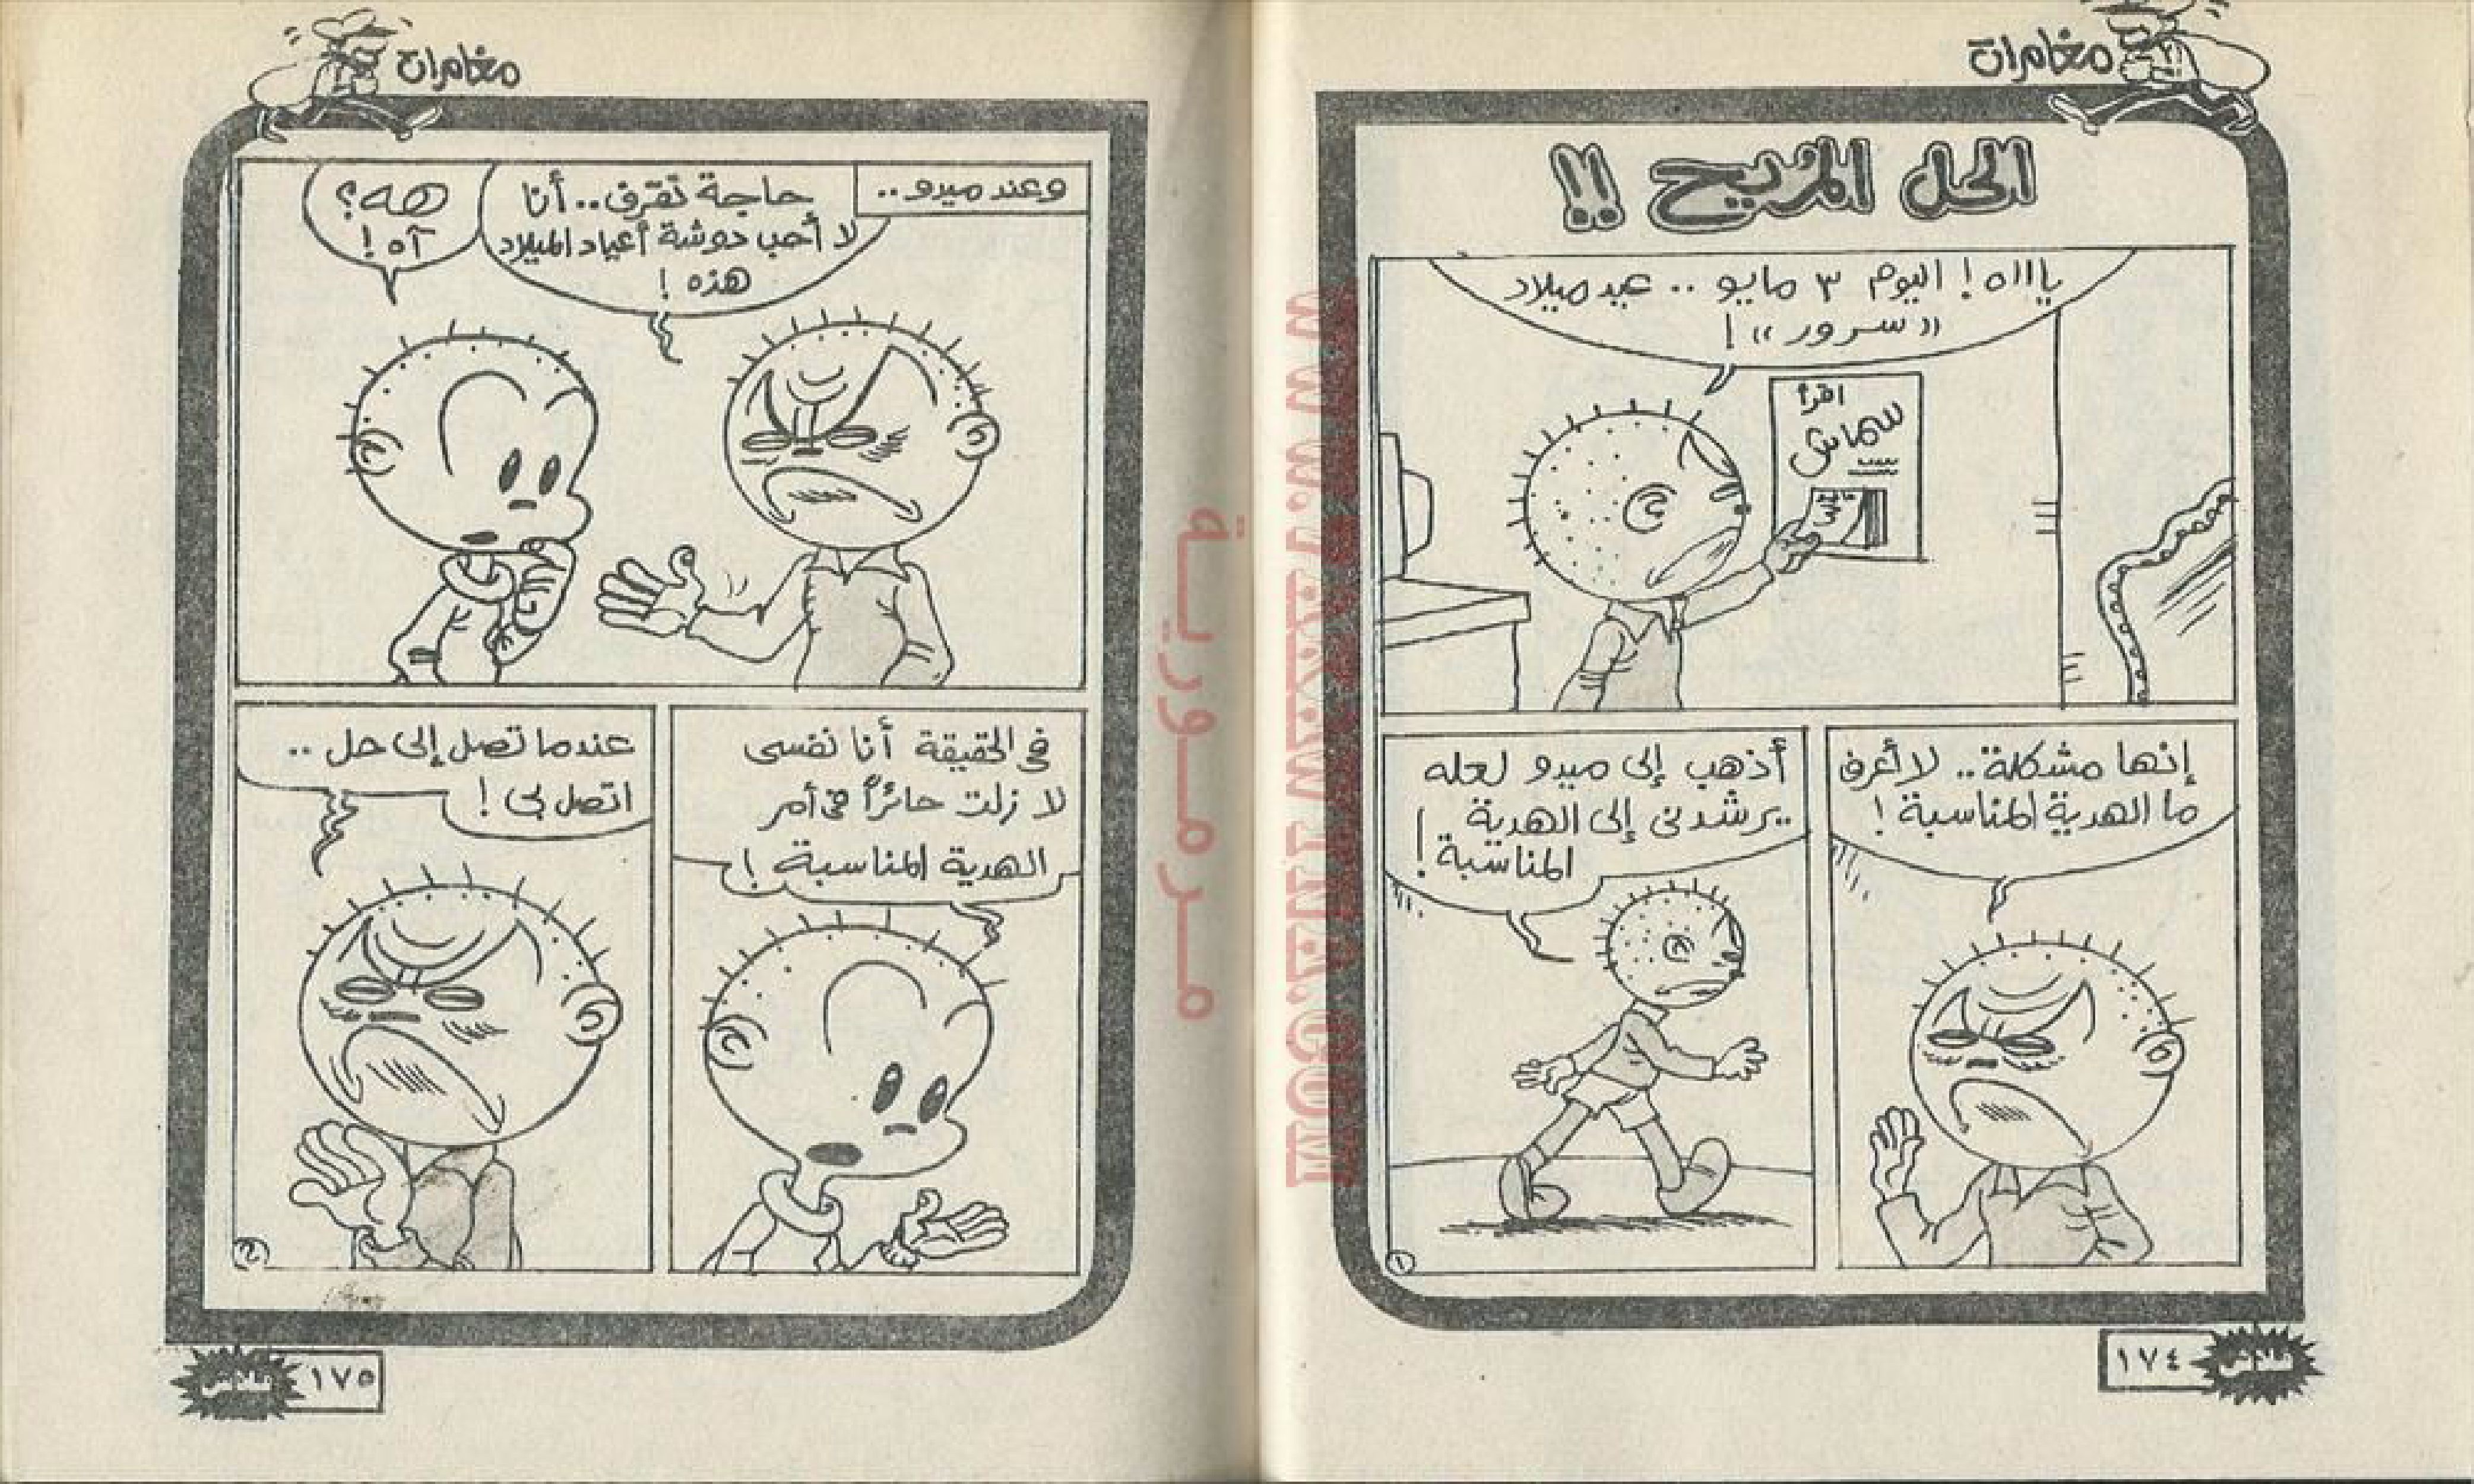 مغامرات
الحل المريح !!
يااااه ! اليوم ٣ مايو .. عيد ميلاد
«سرور» !
اقرأ
سماش
إنها مشكلة .. لا أعرف
ما الهدية المناسبة !
أذهب إلى ميدو لعله
يرشدنى إلى الهدية
المناسبة !
١
١٧٤
مغامرات
وعند ميدو ..
حاجة تقرف .. أنا
لا أحب دوشة أعياد الميلاد
هذه !
هه ؟
آه !
فى الحقيقة أنا نفسى
لا زلت حائراً فى أمر
الهدية المناسبة !
عندما تصل إلى حل ..
اتصل بى !
٢
١٧٥
مرمورية